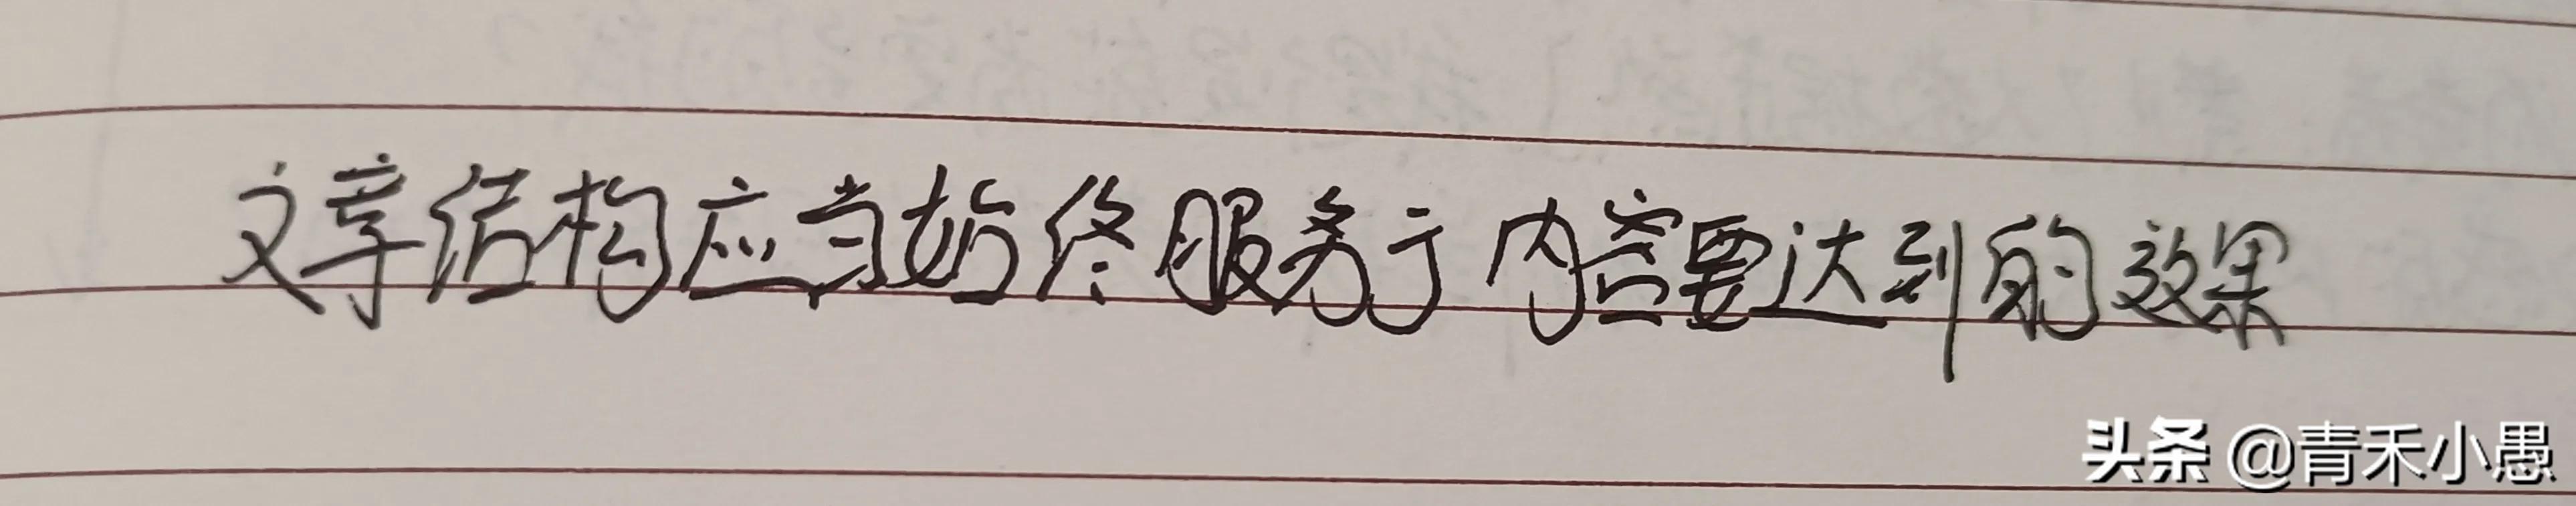 文章结构应当始终服务于内容要达到的效果
头条 @青禾小愚